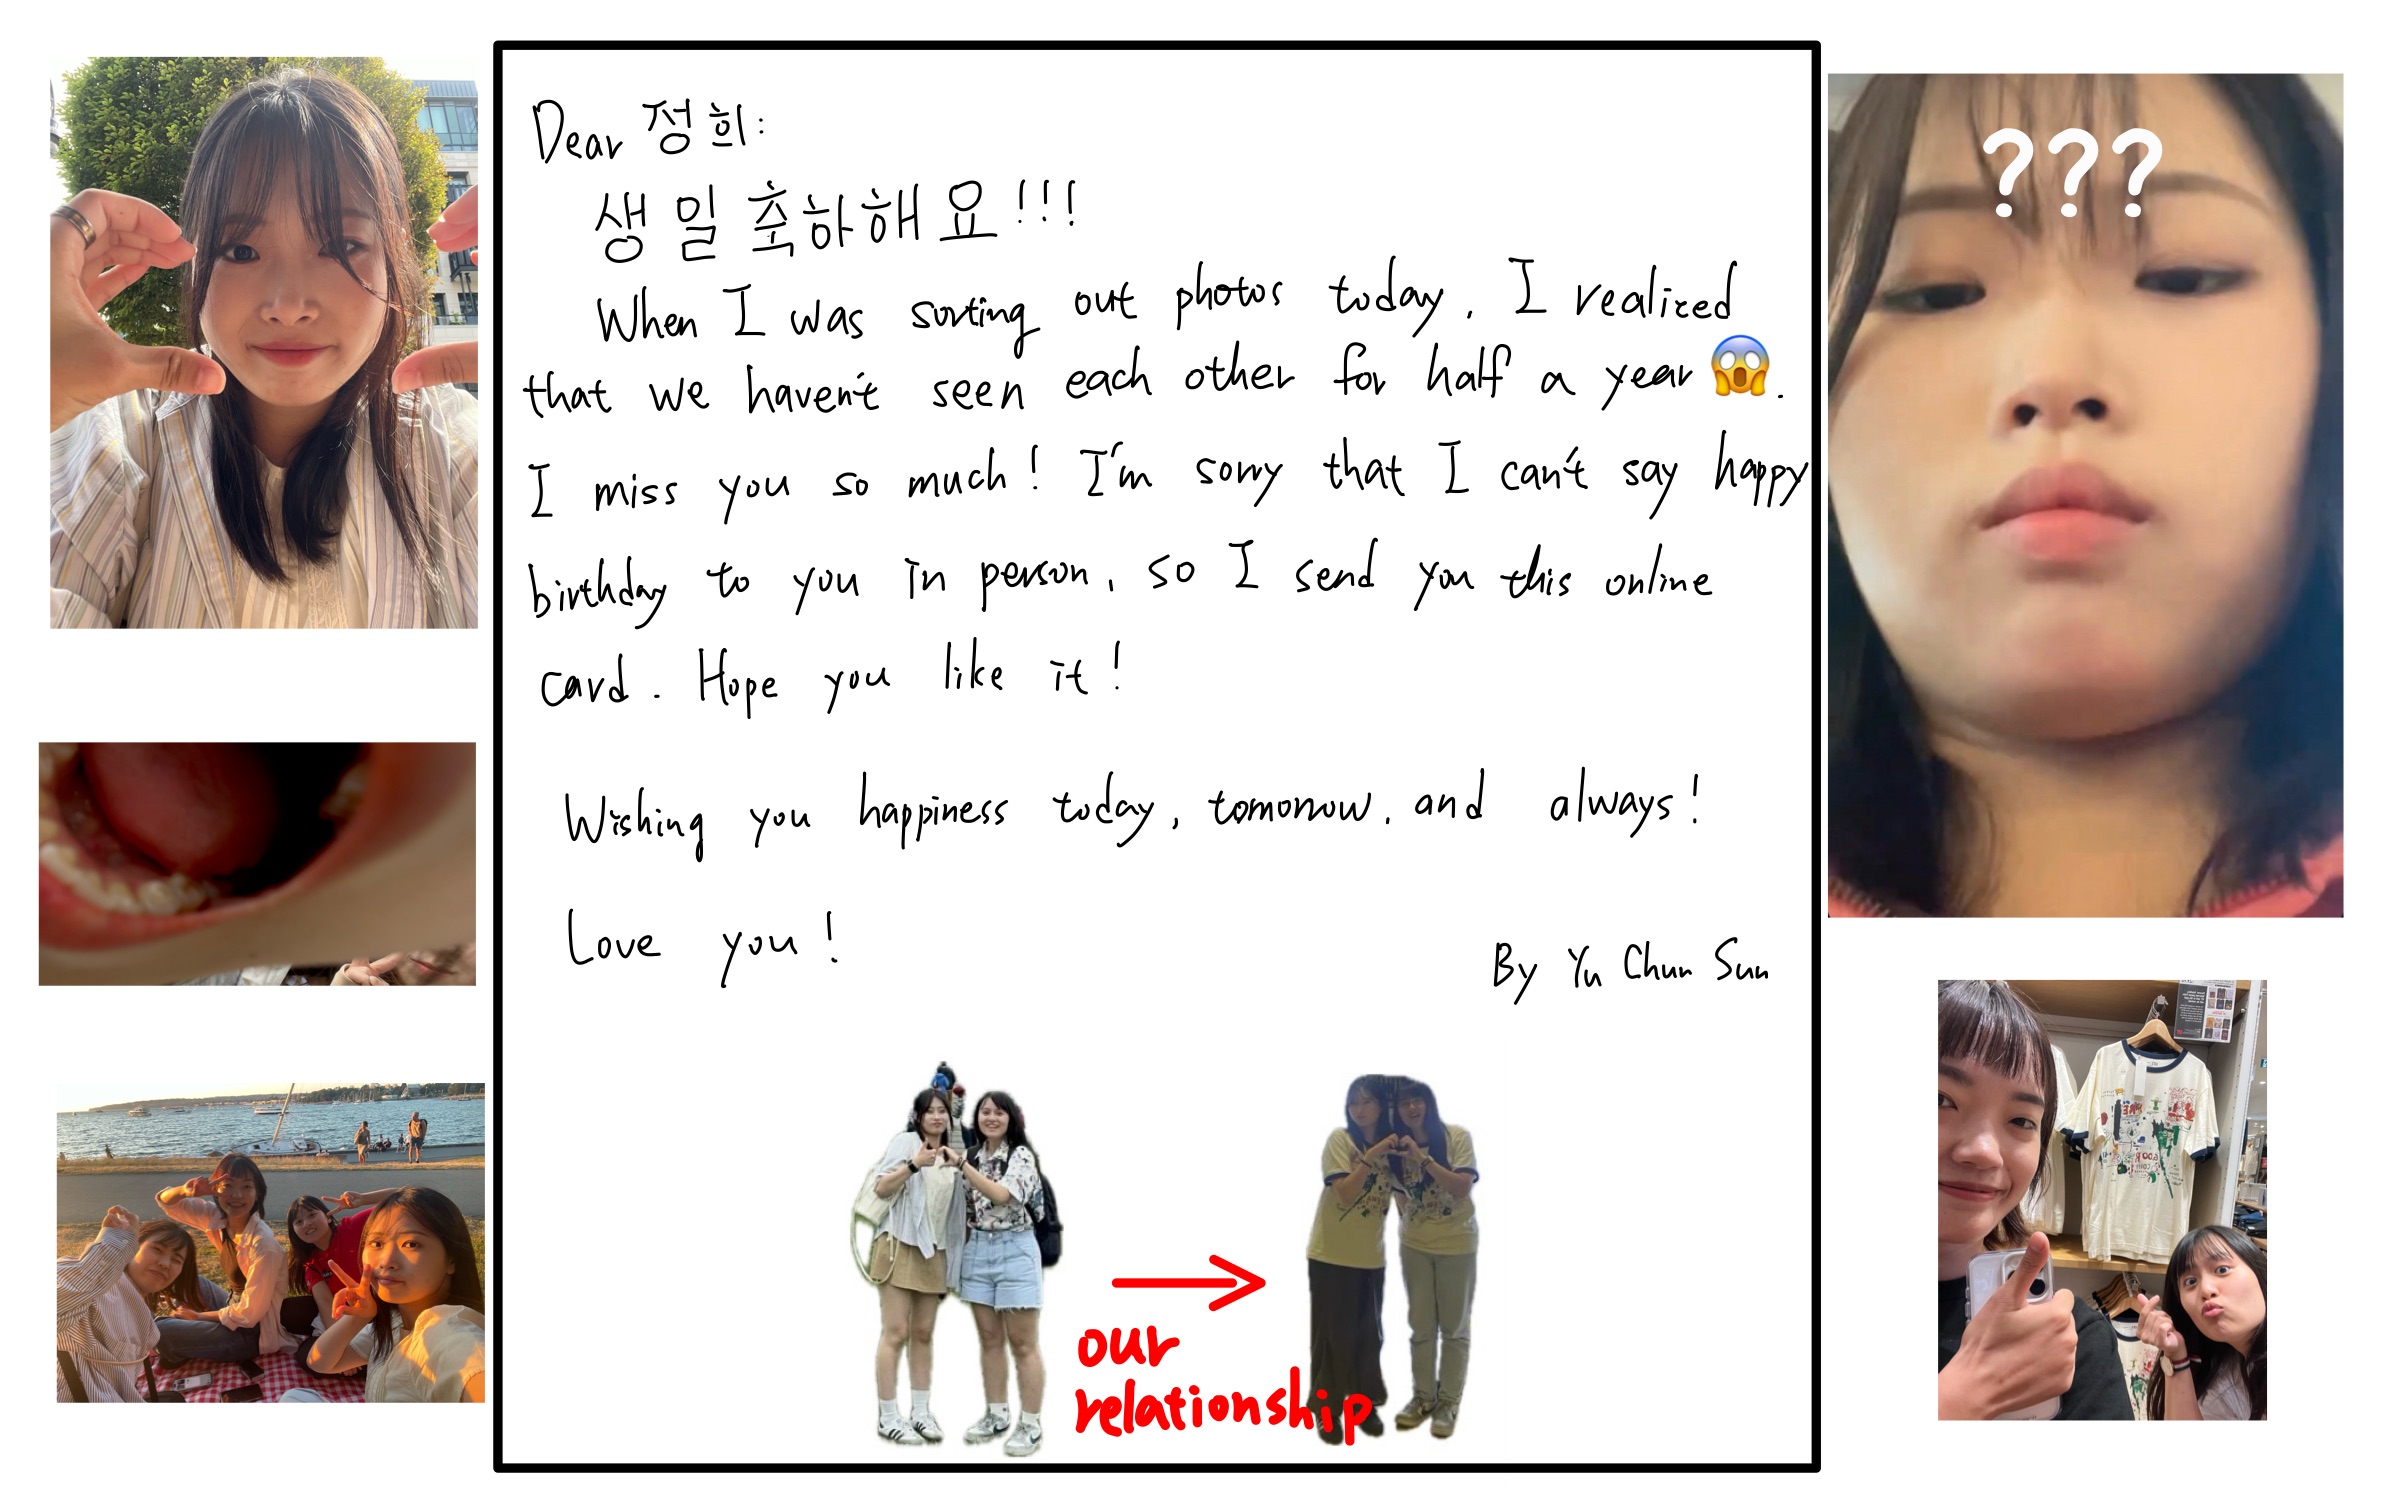 Dear 정희:
생일 축하해요!!!
When I was sorting out photos today, I realized
that we haven't seen each other for half a year 😱.
I miss you so much! I'm sorry that I can't say happy
birthday to you in person, so I send you this online
card. Hope you like it!
Wishing you happiness today, tomorrow, and always!
Love you!
By Yu Chun Sun
our
relationship
???